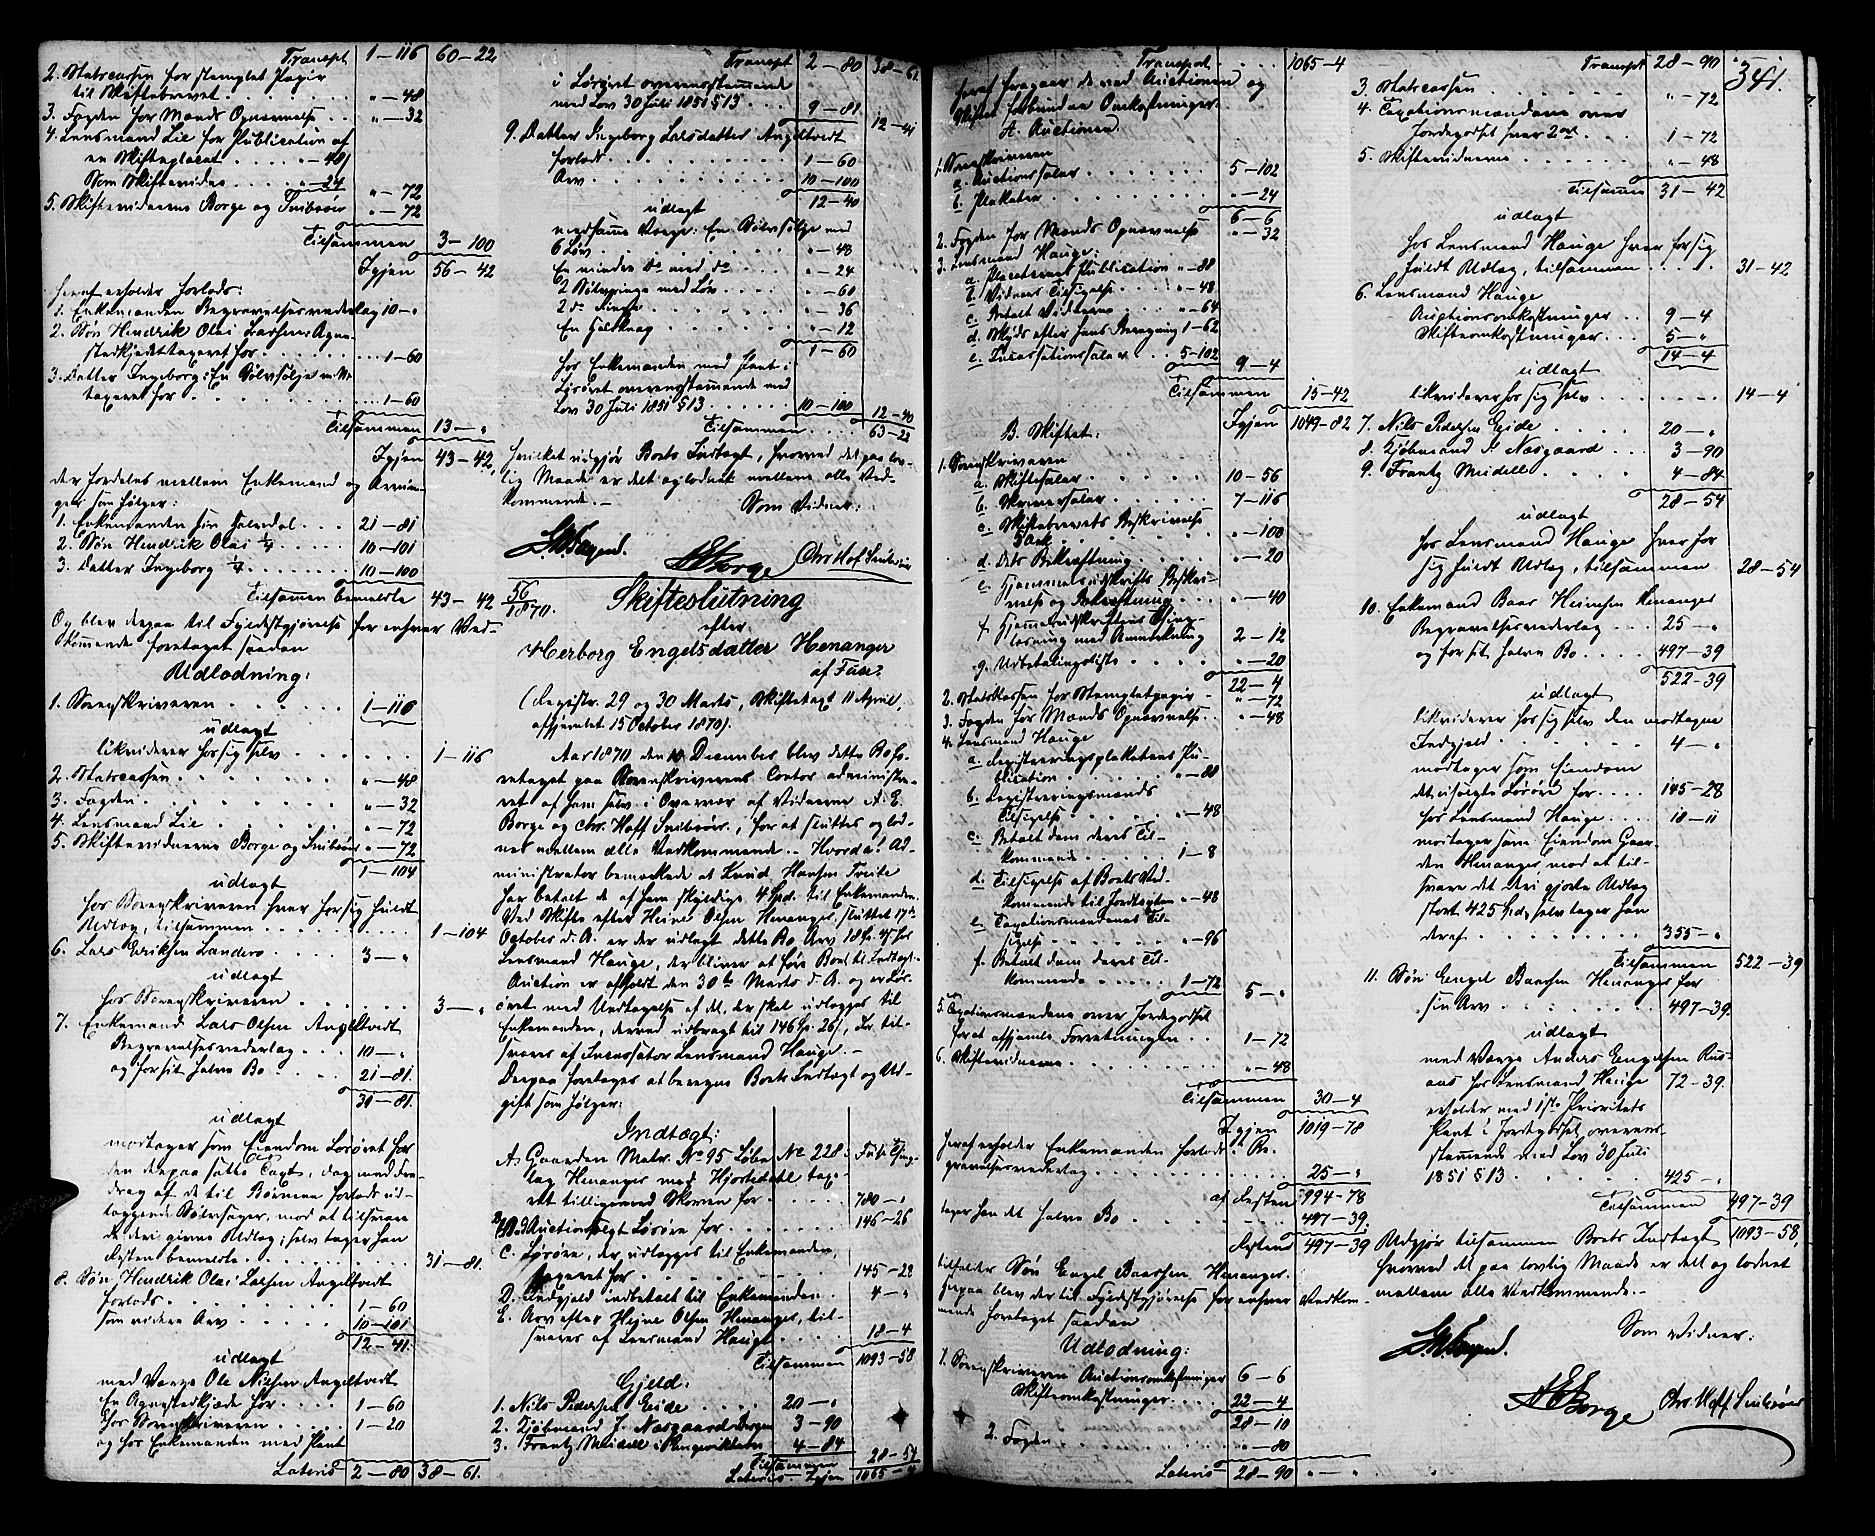 Transpt 1–116 60–22
2. Statscassen for stemplet Papir
til Skiftebrevet „–48
3. Fogden for Mænds Opnævnelse „–32
4. Lensmand Lie for Publication af
en Skifteplacat „–48
Som Skiftevidne „–24
„–72
5. Skiftevidnerne Borge og Snibsøer „–72
Tilsammen 3–100
Igjen 56–42
heraf erholder forlods:
1. Enkemanden Begravelsesvederlag 10–„
2. Søn Hendrik Olai Larsen: Agne-
stedkjede taxeret for 1–60
3. Datter Ingeborg: En Sølvsølje m. M.
taxeret for 1–60
Tilsammen 13–„
Igjen 43–42,
der fordeles mellem Enkemand og Arvin-
ger som følger:
1. Enkemanden sin halvdel 21–81
2. Søn Hendrik Olai ¼ 10–101
3. Datter Ingeborg ¼ 10–100
Tilsammen bemeldte 43–42
Og blev derpaa til Fyldestgjørelse for enhver Ved-
kommende foretaget saadan
Udlodning:
1. Sorenskriveren 1–116
udlagt
likviderer hos sig selv 1–116
2. Statscassen „–48
3. Fogden „–32
4. Lensmand Lie „–72
5. Skiftevidnerne Borge og Snibsøer „–72
1–104
udlagt
hos Sorenskriveren hver for sig fuldt
Udlæg, tilsammen 1–104
6. Lars Eriksen Landero 3–„
udlagt
hos Sorenskriveren 3–„
7. Enkemand Lars Olsen Angeltvedt
Begravelsesvederlag 10–„
og for sit halve Bo 21–81
31–81.
udlagt
modtager som Eiendom Løsøret for
den derpaa satte Taxt, dog med Fra-
drag af de til Børnene forlods ud-
læggende Sølvsager, mod at tilsvare
de deri givne Udlæg; selv tager han
Resten bemeldte 31–81.
8. Søn Hendrik Olai Larsen Angeltvedt
forlods 1–60
som videre Arv 10–101
12–41.
udlagt
med Værge Ole Nilsen Angeltvedt
En Agnestedkjæde for 1–60
hos Sorenskriveren 1–20
og hos Enkemanden med Pant
Lateris 2–80 38–61.
Transpt 2–80 38–61.
i Løsøret overensstemmende
med Lov 30 Juli 1851 § 13 9–81
12–41
9. Datter Ingeborg Larsdatter Angeltvedt
forlods 1–60
Arv 10–100
12–40
udlagt
ved samme Værge: En Sølvsølje med
6 Løv „–48
En mindre do med do „–24
2 Sølvringe med Løv „–60
2 do Ringe „–36
En Halsknap „–12
1–60
hos Enkemanden med Pant i
Løsøret overensstemmende med
Lov 30 Juli 1851 § 13 10–100
12–40
Tilsammen 63–22
hvilket udgjør Boets Indtægt, hvorved det paa lov-
lig Maade er delt og lodnet mellem alle Ved-
kommende.–
Som Vidner:
AEBorge Chr. Hoff Snibsøer
56/1870.
Skifteslutning
efter
Herborg Engelsdatter Henanger
af Fuse.
(Registr. 29 og 30 Marts, Skiftetagt 11 April,
afhjemlet 15 October 1870).
Aar 1870 den 10 December blev dette Bo fo-
retaget paa Sorenskriverens Contor administre-
ret af ham selv i Overvær af Vidnerne A. E.
Borge og Chr. Hoff Snibsøer, for at sluttes og lod-
nes mellem alle Vedkommende.– Hvorda: Ad-
ministrator bemærkede at Knud Hansen
har betalt de af ham skyldige 4 Spd. til Enkemanden.
Ved Skifte efter Heine Olsen Henanger, sluttet 17de
October d. A. er der udlagt dette Bo Arv 18 Spd. 4 s hos
Lensmand Hauge, der bliver at føre Boet til Indtægt.
Auction er afholdt den 30te Marts d. A. og er Løs-
øret med Undtagelse af det, der skal udlægges til
Enkemanden, derved udbragt til 146 Spd. 26 s, der til-
svares af Incassator Lensmand Hauge.–
Derpaa foretoges at beregne Boets Indtægt og Ud-
gift som følger:
Indtægt:
A. Gaarden Matr. No 95 Løbe No 228
Henanger med
ret tilligemed Skoven for 780–„
B. Auctionsolgt Løsøre for 146–26
C. Løsøre, der udlægges til Enkemanden,
taxeret for 145–28
D. Indgjeld indbetalt til Enkemanden 4–„
E. Arv efter Heine Olsen Henanger, til-
svares af Lensmand Hauge 18–4
Tilsammen 1093–58
Gjeld:
1. Nils Pedersen Eide 20–„
2. Kjøbmand J. Næsgaard Bergen 3–90
3. Frantz Meidell i 4–84
28–54
Tilsammen
Lateris – Igjen 1065–4
Transport 1065–4
Heraf fragaar de ved Auctionen og
Skiftet forbundne Omkostninger.
A. Auctionen.
1. Sorenskriveren
a. Auctionssalær 5–102
b. Plakater „–24
6–6
2. Fogden for Mænds Opnævnelse „–32
3. Lensmand Hauge:
a. Placatens Publication „–88
b. Vidners Tilsigelse „–48
c. Betalt Vidnerne „–64
d. Skyds efter hans Beregning 1–62
e. Incassationssalær 5–102
9–4
Tilsammen 15–42
Igjen 1049–82
B. Skiftet:
1. Sorenskriveren
a. Skiftesalær 10–56
b. Skriversalær 7–116
c. Skiftebrevets Beskrivelse
5 Ark „–100
d. dets Bekræftning „–20
e. Hjemmelsudskrifts Beskri-
velse og Bekræftning „–40
f. Hjemmelsudskriftens Thing-
læsning med Anmærkning 2–12
g. Udbetalingsliste „–20
22–4
2. Statskassen for Stemplet papir „–72
3. Fogden for Mænds Opnævnelse „–48
4. Lensmand Hauge
a. Registreringsplakatens Pu-
blication „–88
b. Registreringsmænds
Tilsigelse „–48
c. Betalt dem deres Til-
kommende 1–8
d. Tilsigelse af Boets Ved-
kommende til Jordtaxten „–48
e. Taxationsmændenes Til-
sigelse „–96
f. Betalt dem deres Til-
kommende 1–72
5–„
5. Taxationsmændene over Jordegodset
for at afhjemle Forretningen 1–72
6. Skiftevidnerne „–48
Tilsammen 30–4
Igjen 1019–78
heraf erholder Enkemanden forlods i Be-
gravelsesvederlag 25–„
af Resten 994–78
tager han det halve Bo 497–39.
Resten 497–39
tilfalder Søn Engel Baarsen Henanger.
Herpaa blev der til Fyldestgjørelse for enhver Vedkom-
mende foretaget saadan
Udlodning:
1. Sorenskriveren Auctionsomkostninger 6–6
Skifteomkostninger 22–4
28–10
2. Fogden „–80
Lateris 28–90 „–„
341.
Transpt 28–90
3. Statscassen „–72
4. Taxationsmændene over
Jordegodset hver 2ort 1–72
5. Skiftevidnerne „–48
Tilsammen 31–42
udlagt
hos Lensmand Hauge hver for sig
fuldt Udlæg, tilsammen 31–42
6. Lensmand Hauge
Auctionsomkostninger 9–4
Skifteomkostninger 5–„
14–4
udlagt
likviderer hos sig selv 14–4
7. Nils Pedersen Eide 20–„
8. Kjøbmand J. Næsgaard 3–90
9. Frantz Meidell 4–84
28–54
udlagt
hos Lensmand Hauge hver for
sig fuldt Udlæg, tilsammen 28–54
10. Enkemand Baar Heinesen Henanger
Begravelsesvederlag 25–„
og for sit halve Bo 497–39
522–39
udlagt
likviderer hos sig selv den modtagne
Indgjeld 4–„
modtager som Eiendom
det usolgte Løsøre for 145–28
hos Lensmand Hauge 18–11
modtager som Eiendom Gaar-
den Henanger mod at til-
svare det deri gjorte Udlæg
stort 425 Spd., selv tager han
deraf 355–„
Tilsammen 522–39
11. Søn Engel Baarsen Henanger for
sin Arv 497–39.
udlagt
med Værge Anders Engelsen
hos Lensmand Hauge 72–39.
erholder med 1ste Prioritets
Pant i Jordegodset overens-
stemmende med Lov 30 Juli
1851 § 13 425–„
Tilsammen 497–39
Udgjør tilsammen Boets Indtægt 1093–58,
hvorved det paa lovlig Maade er delt og lodnet
mellem alle Vedkommende.–
Som Vidner:
AEBorge Chr. Hoff Snibsøer